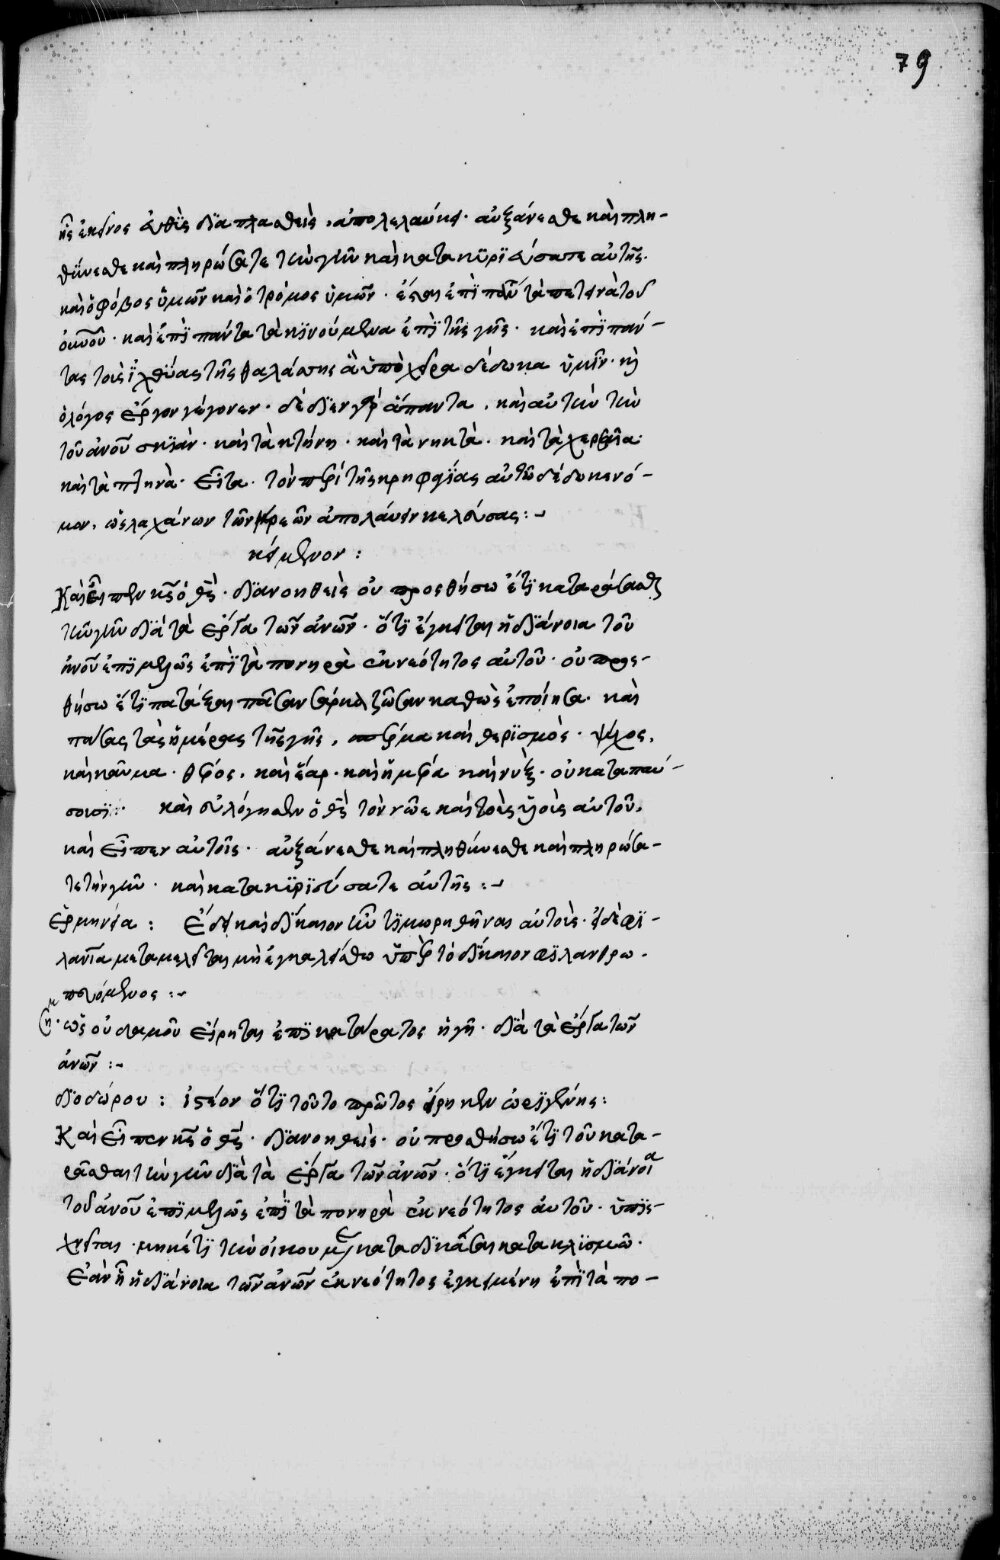 79
ἧς ἐκεῖνος εὐθὺς διαπλασθεὶς, ἀπολελαύκει. αὐξάνεσθε καὶ πλη-
θύνεσθε καὶ πληρώσατε τὴν γῆν καὶ κατακυριεύσατε αὐτῆς.
καὶ ὁ φόβος ὑμῶν καὶ ὁ τρόμος ὑμῶν. ἔσται ἐπὶ πᾶσι τὰ πετεινὰ τοῦ
οὐνοῦ. καὶ ἐπὶ πάντα τὰ κινούμενα ἐπὶ τῆς γῆς. καὶ ἐπὶ πάν-
τας τοὺς ἰχθύας τῆς θαλάσσης ἃ ὑπὸ χεῖρα δέδωκα ὑμῖν. καὶ
ὁ λόγος ἔργον γέγονεν. δέδιεν γὰρ ἅπαντα, καὶ αὐτὴν τὴν
τοῦ ἀνοῦ σκιὰν. καὶ τὰ κτήνη. καὶ τὰ νηκτὰ. καὶ τὰ χερσαῖα.
καὶ τὰ πτηνὰ. εἶτα. τὸν περὶ τῆς κρηφαγίας αὐτῶ δέδωκε νό-
μον. ὡς λαχάνων τῶν κρεῶν ἀπολαύειν κελεύσας:-
κείμενον:
Καὶ εἶπεν κς ὁ θς. διανοηθεὶς οὐ προσθήσω ἔτι καταράσασθαι
τὴν γῆν διὰ τὰ ἔργα τῶν ἀνῶν. ὅτι ἔγκειται ἡ διάνοια τοῦ
ἀνοῦ ἐπιμελῶς ἐπὶ τὰ πονηρὰ ἐκ νεότητος αὐτοῦ. οὐ προσ-
θήσω ἔτι πατάξαι πᾶσαν σάρκα ζῶσαν καθὼς ἐποίησα. καὶ
πάσας τὰς ἡμέρας τῆς γῆς, σπέρμα καὶ θερισμὸς. ψύχος,
καὶ καῦμα. θέρος. καὶ ἔαρ. καὶ ἡμέρα καὶ νὺξ. οὐ καταπαύ-
σουσι: καὶ εὐλόγησεν ὁ θς τὸν νῶε καὶ τοὺς υἱοὺς αὐτοῦ.
καὶ εἶπεν αὐτοῖς. αὐξάνεσθε καὶ πληθύνεσθε καὶ πληρώσα-
τε τὴν γῆν. καὶ κατακυριεύσατε αὐτῆς:-
Ἑρμηνεία: Ἔδει καὶ δίκαιον ἦν τιμωρηθῆναι αὐτοὺς. εἰ δὲ φι-
λανία μεταμελεῖται μὴ ἐγκαλείσθω ὑπὲρ τὸ δίκαιον φιλανθρω-
πευόμενος:-
ση. ὡς οὐδαμοῦ εἴρηται ἐπικατάρατος ἡ γῆ. διὰ τὰ ἔργα τῶν
ἀνῶν:-
διοδώρου: ἰστέον ὅτι τοῦτο πρῶτος εἴρηκεν ὠριγένης:
Καὶ εἶπεν κς ὁ θς. διανοηθεὶς. οὐ προσθήσω ἔτι τοῦ κατα-
ρᾶσθαι τὴν γῆν διὰ τὰ ἔργα τῶν ἀνῶν. ὅτι ἔγκειται ἡ διάνοια
τοῦ ἀνοῦ ἐπιμελῶς ἐπὶ τὰ πονηρὰ ἐκ νεότητος αὐτοῦ. ὑπισ-
χνεῖται. μηκέτι τὴν οἰκουμένην καταδικάσαι κατακλισμῶ.
Ἐὰν ἦ ἡ διάνοια τῶν ἀνῶν ἐκ νεότητος ἐγκειμένη ἐπὶ τὰ πο-